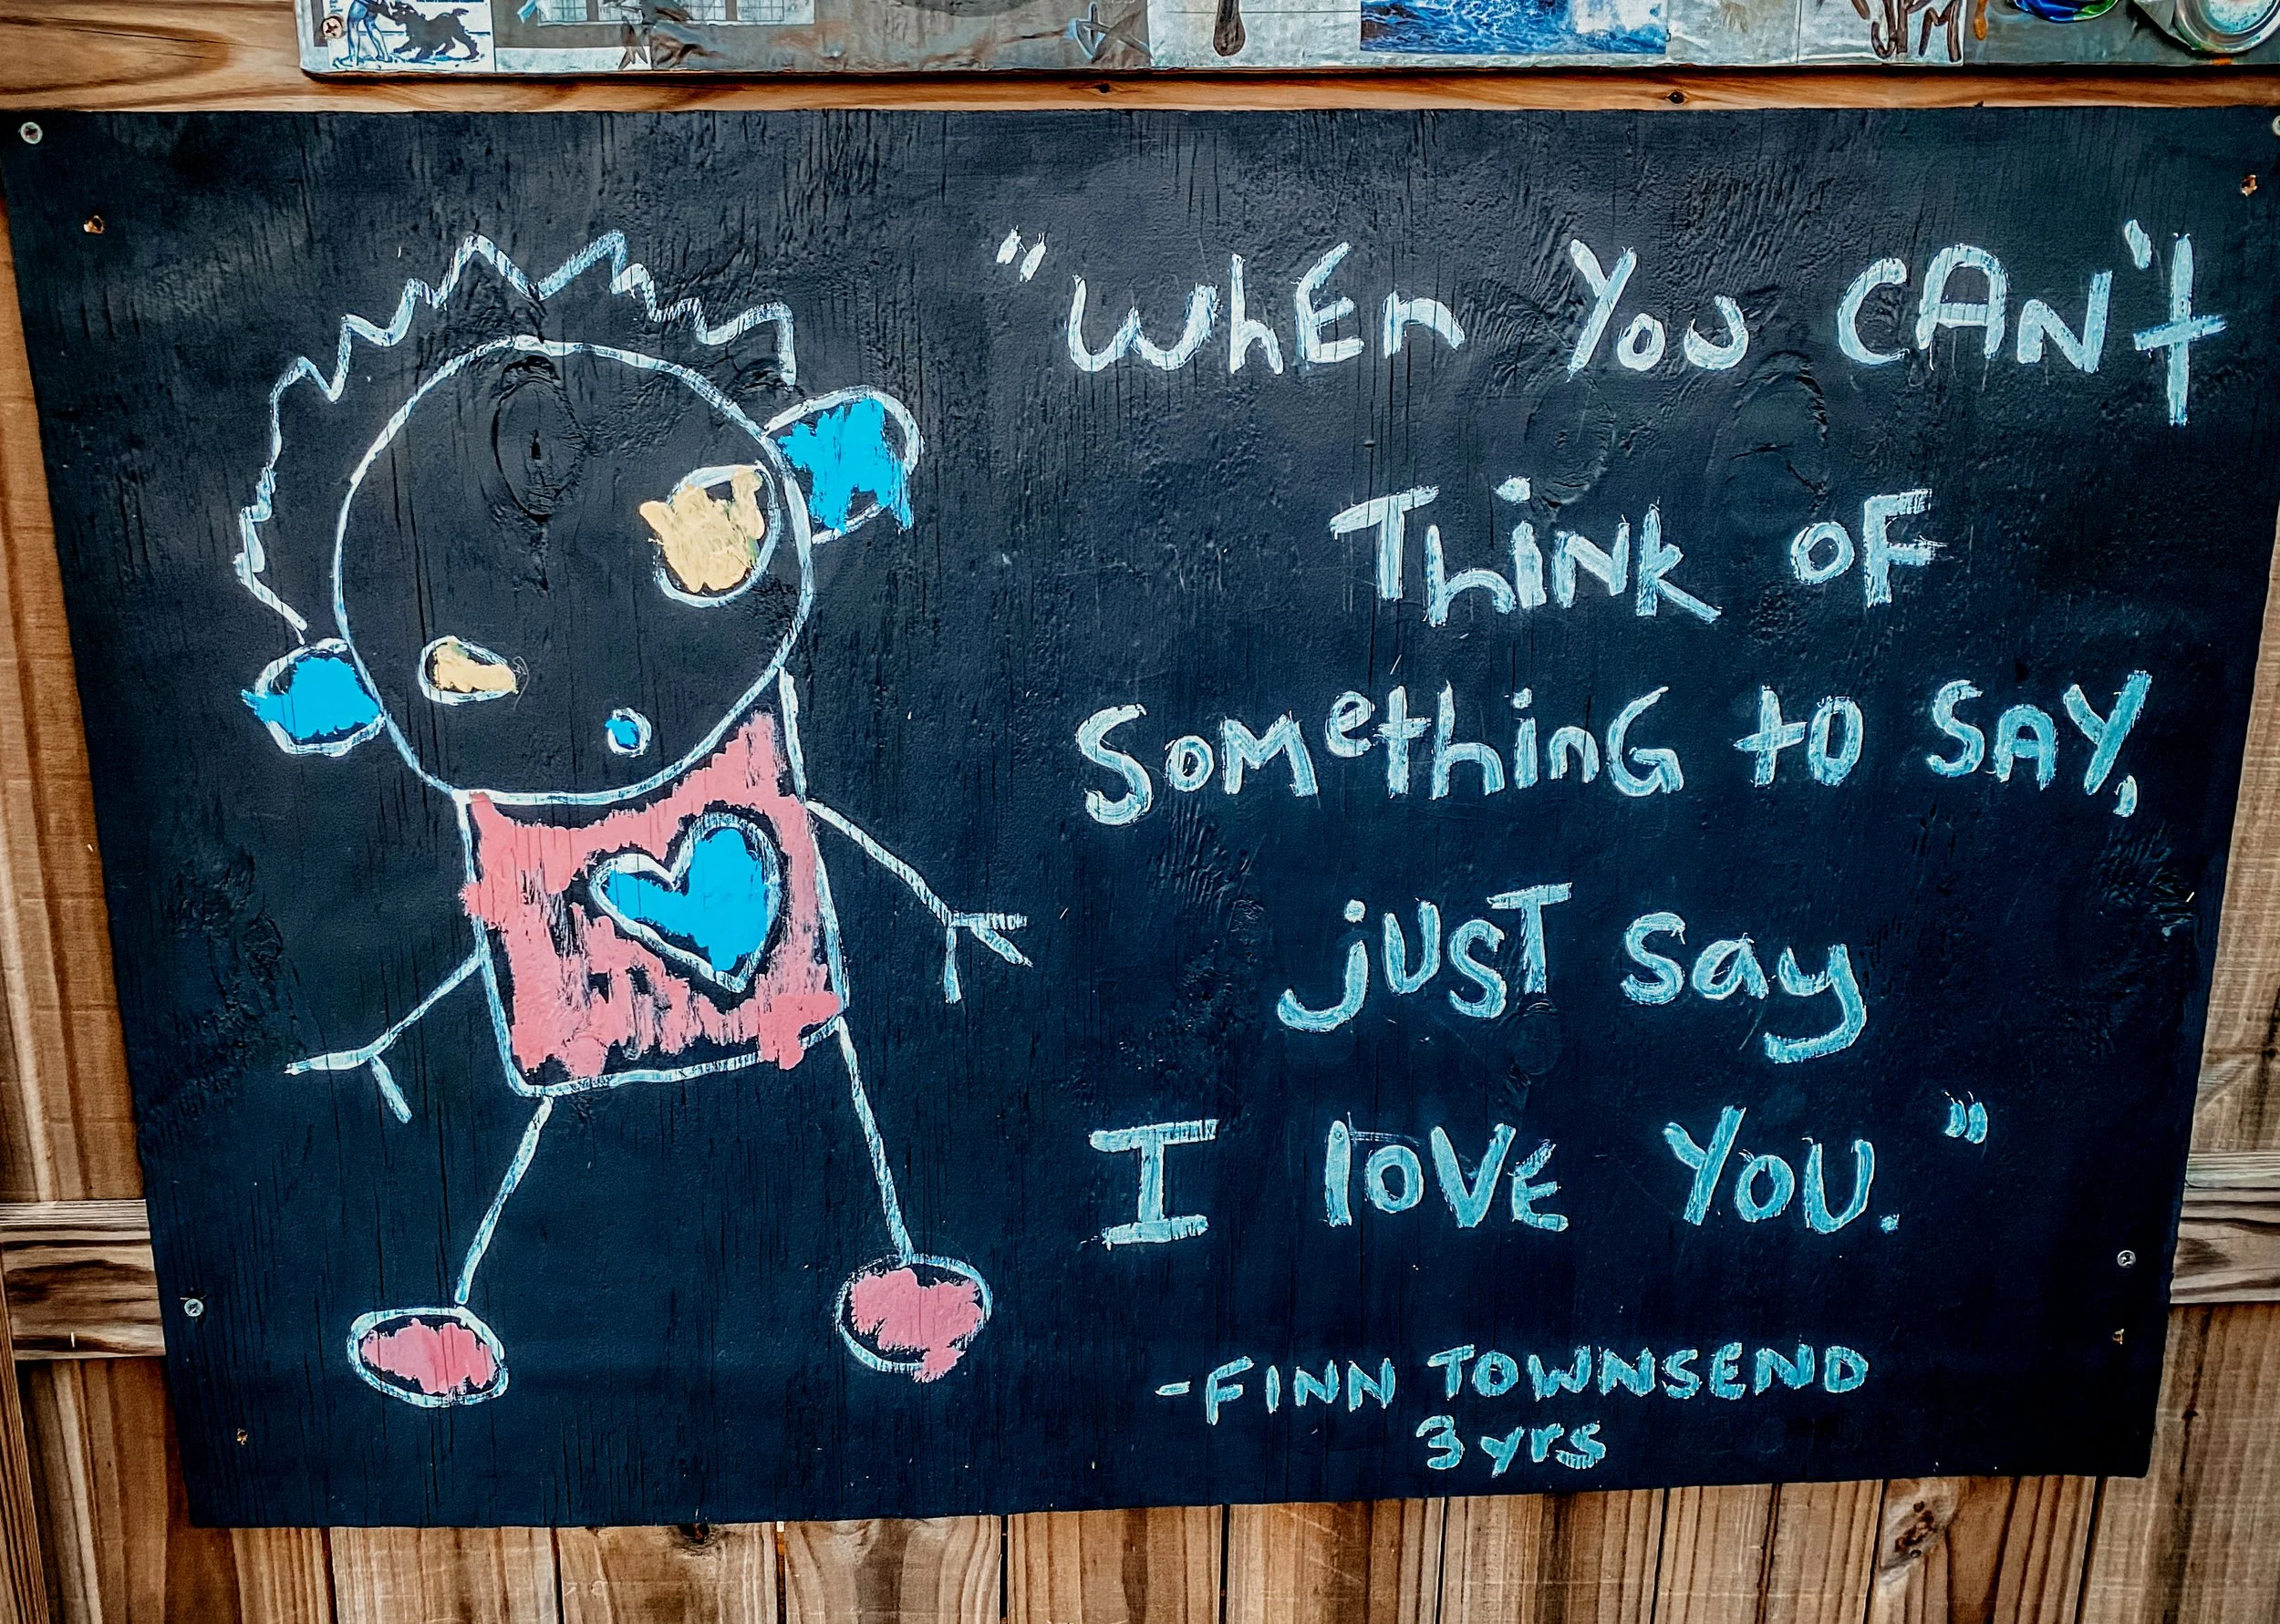 JPM
"WhEn YoU CAN't
ThiNk OF
SoMethinG to SAY,
jUST say
I lOVE YOU."
-FINN TOWNSEND
3 yrs